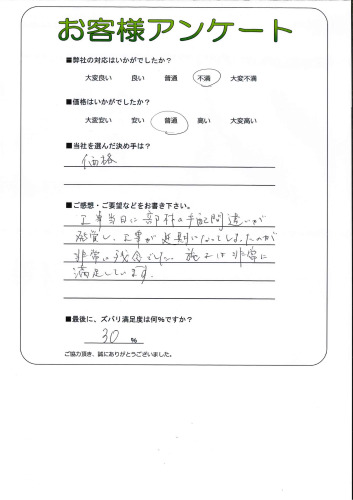 お客様アンケート
■弊社の対応はいかがでしたか?
大変良い 良い 普通 不満 大変不満
■価格はいかがでしたか?
大変安い 安い 普通 高い 大変高い
■当社を選んだ決め手は?
価格
■ご感想・ご要望などをお書き下さい。
工事当日に部材の手配間違いが
発覚し、工事が延期になってしまったのが
非常に残念でした。施工は非常に
満足しています。
■最後に、ズバリ満足度は何%ですか?
30 %
ご協力頂き、誠にありがとうございました。